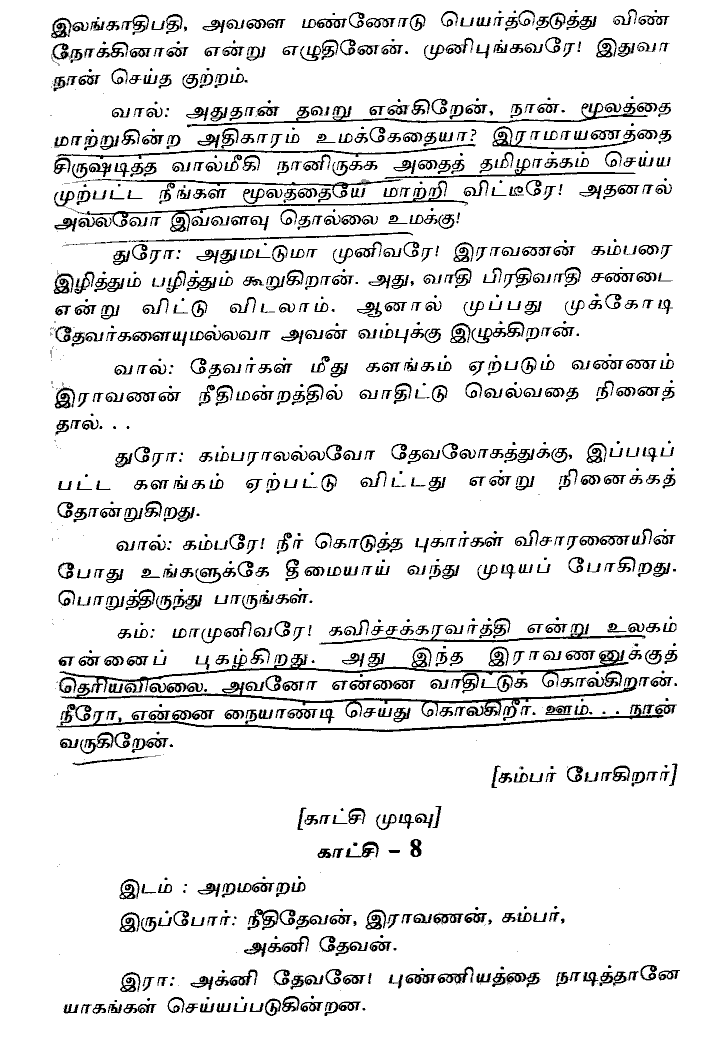 இலங்காதிபதி, அவளை மண்ணோடு பெயர்த்தெடுத்து விண்
நோக்கினான் என்று எழுதினேன். முனிபுங்கவரே! இதுவா
நான் செய்த குற்றம்.
வால்: அதுதான் தவறு என்கிறேன், நான். மூலத்தை
மாற்றுகின்ற அதிகாரம் உமக்கேதையா? இராமாயணத்தை
சிருஷ்டித்த வால்மீகி நானிருக்க அதைத் தமிழாக்கம் செய்ய
முற்பட்ட நீங்கள் மூலத்தையே மாற்றி விட்டீரே! அதனால்
அல்லவோ இவ்வளவு தொல்லை உமக்கு!
துரோ: அதுமட்டுமா முனிவரே! இராவணன் கம்பரை
இழித்தும் பழித்தும் கூறுகிறான். அது, வாதி பிரதிவாதி சண்டை
என்று விட்டு விடலாம். ஆனால் முப்பது முக்கோடி
தேவர்களையுமல்லவா அவன் வம்புக்கு இழுக்கிறான்.
வால்: தேவர்கள் மீது களங்கம் ஏற்படும் வண்ணம்
இராவணன் நீதிமன்றத்தில் வாதிட்டு வெல்வதை நினைத்
தால். . .
துரோ: கம்பராலல்லவோ தேவலோகத்துக்கு, இப்படிப்
பட்ட களங்கம் ஏற்பட்டு விட்டது என்று நினைக்கத்
தோன்றுகிறது.
வால்: கம்பரே! நீர் கொடுத்த புகார்கள் விசாரணையின்
போது உங்களுக்கே தீமையாய் வந்து முடியப் போகிறது.
பொறுத்திருந்து பாருங்கள்.
கம்: மாமுனிவரே! கவிச்சக்கரவர்த்தி என்று உலகம்
என்னைப் புகழ்கிறது. அது இந்த இராவணனுக்குத்
தெரியவில்லை. அவனோ என்னை வாதிட்டுக் கொல்கிறான்.
நீரோ, என்னை நையாண்டி செய்து கொல்கிறீர். ஊம். . . நான்
வருகிறேன்.
[கம்பர் போகிறார்]
[காட்சி முடிவு]
காட்சி – 8
இடம் : அறமன்றம்
இருப்போர்: நீதிதேவன், இராவணன், கம்பர்,
அக்னி தேவன்.
இரா: அக்னி தேவனே! புண்ணியத்தை நாடித்தானே
யாகங்கள் செய்யப்படுகின்றன.